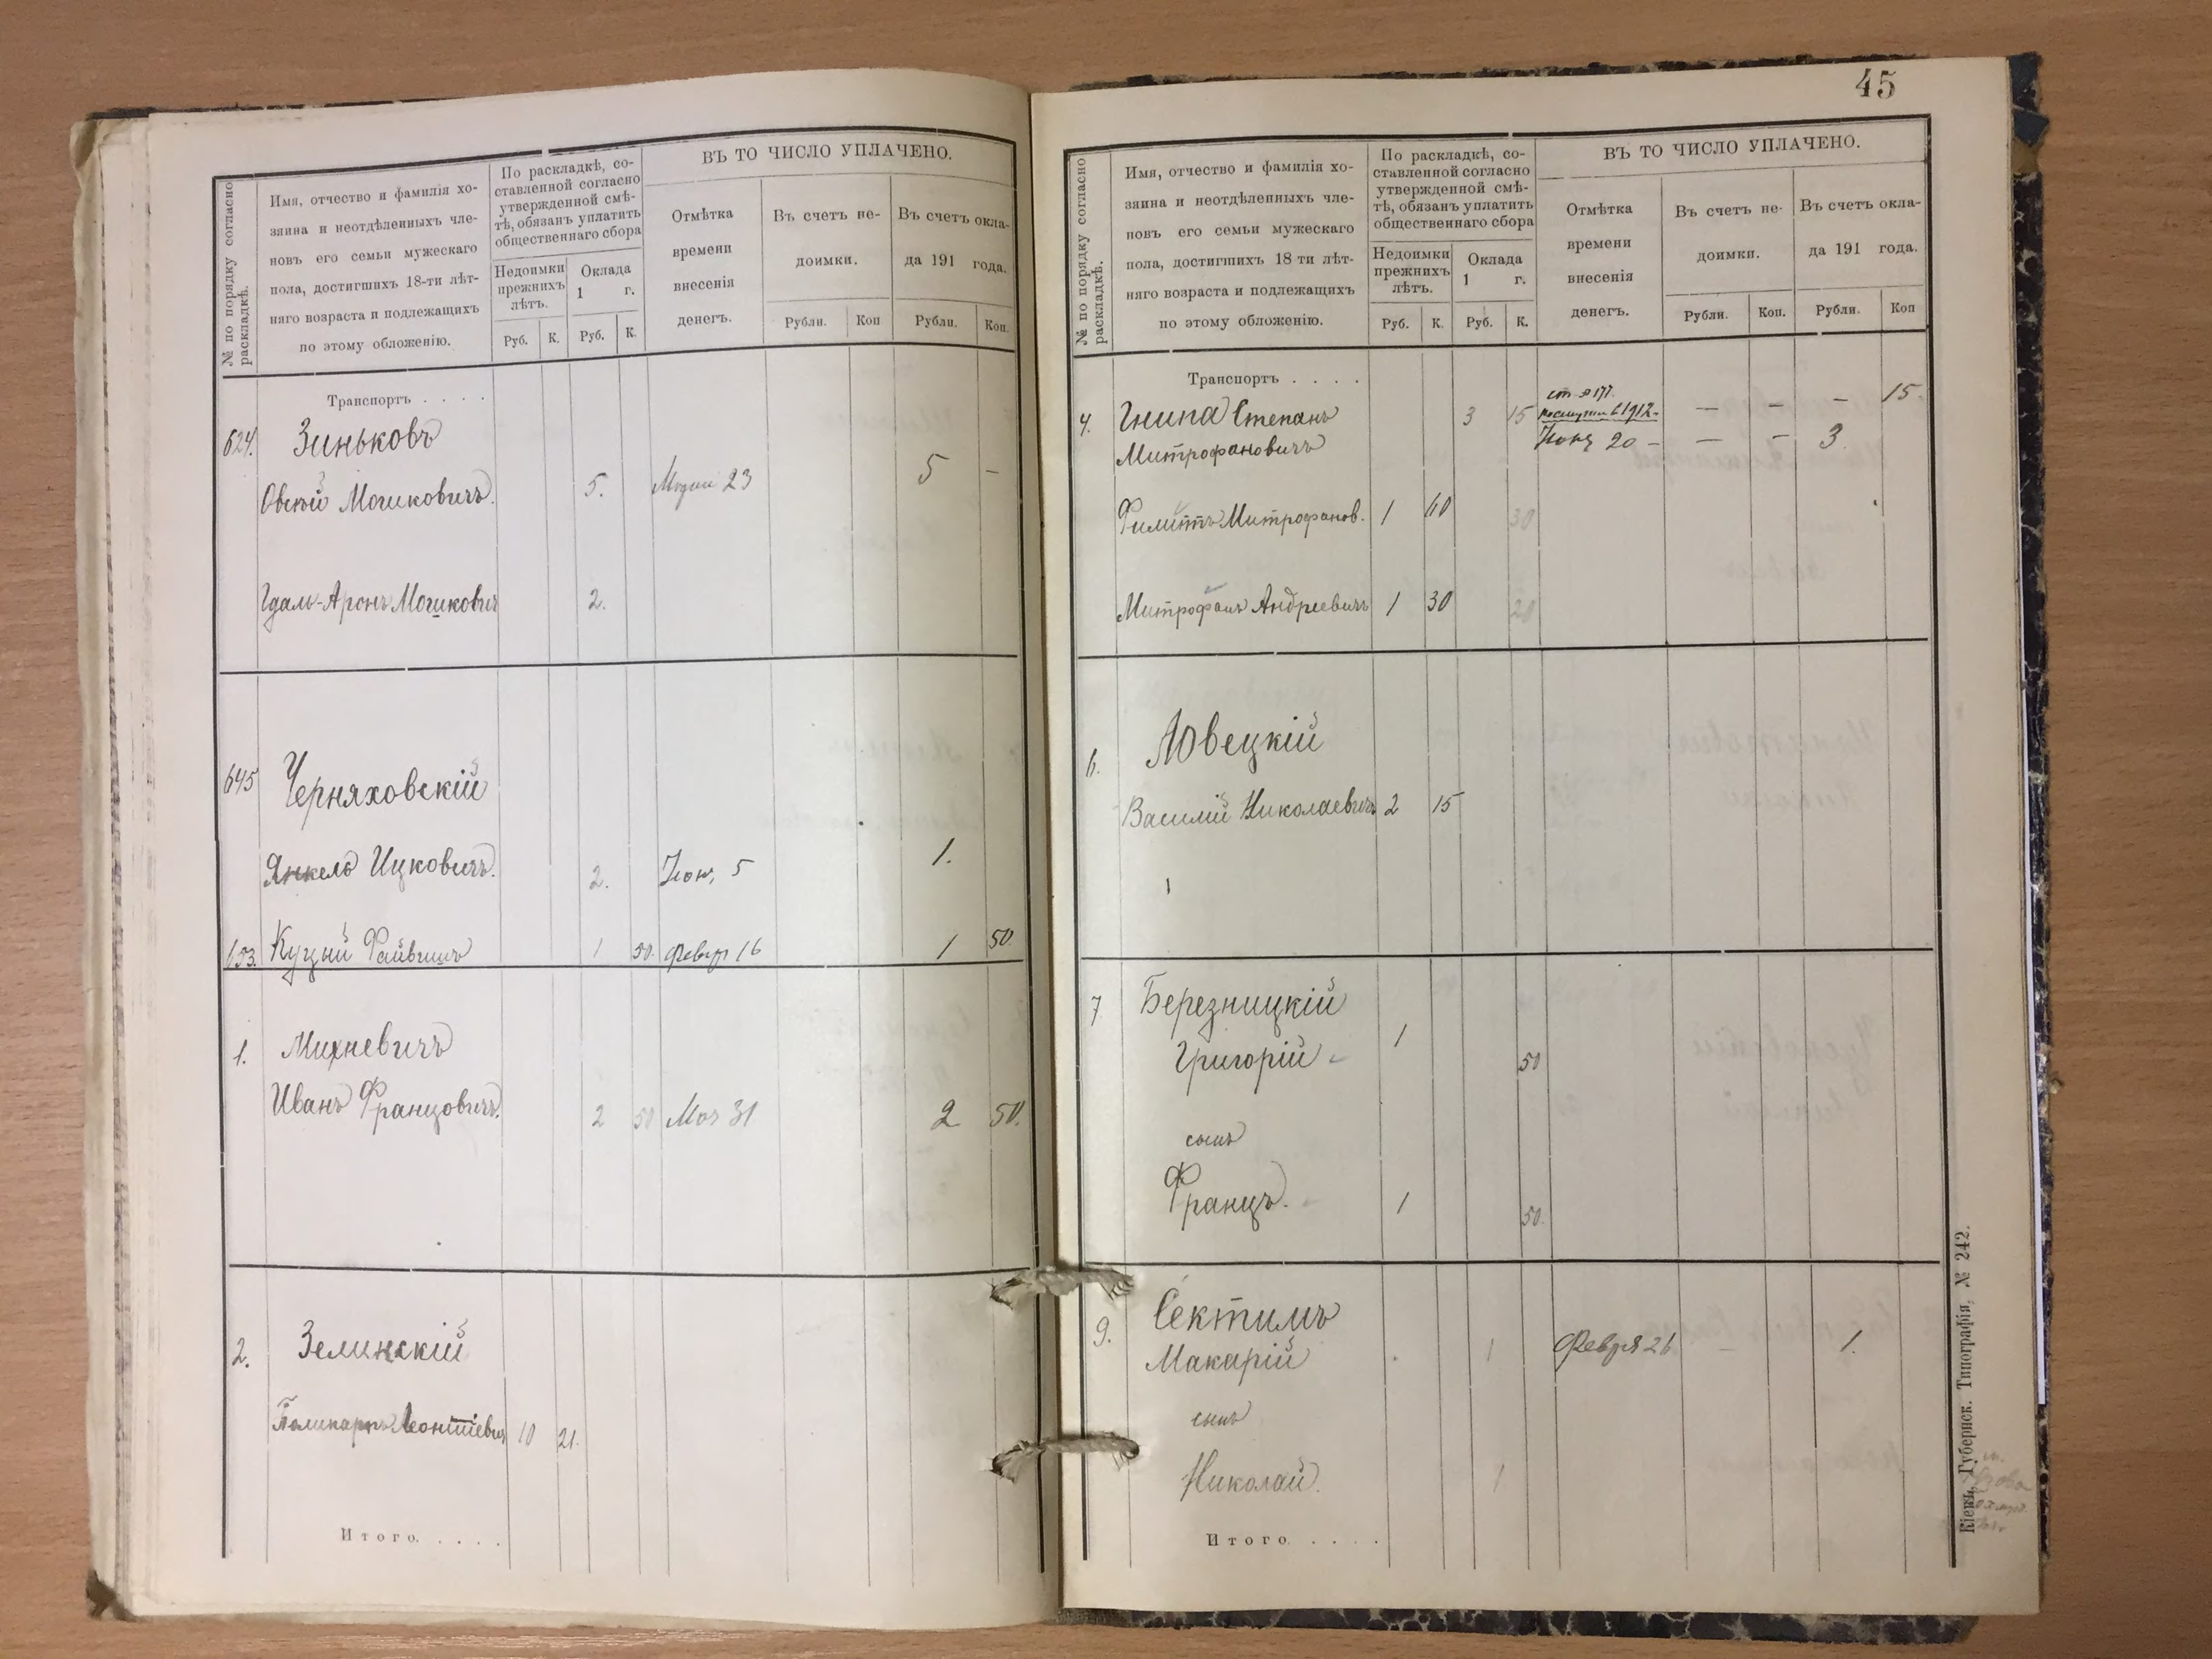 № по порядку согласно раскладкѣ.
Имя, отчество и фамилія хо-
зяина и неотдѣленныхъ чле-
новъ его семьи мужескаго
пола, достигшихъ 18-ти лѣт-
няго возраста и подлежащихъ
по этому обложенію.
По раскладкѣ, со-
ставленной согласно
утвержденной смѣ-
тѣ, обязанъ уплатить
общественнаго сбора
Недоимки
прежнихъ
лѣтъ.
Оклада
1 г.
Руб. К. Руб. К.
ВЪ ТО ЧИСЛО УПЛАЧЕНО.
Отмѣтка
времени
внесенія
денегъ.
Въ счетъ не-
доимки.
Въ счетъ окла-
да 191 года.
Рубли. Коп Рубли. Коп.
Транспортъ . . . .
624. Зиньковъ
Овсѣй Мошковичъ. 5. 23 5 —
Гдаль-Аронъ Мошкович 2.
645 Черняховскій
Янкель Ицковичъ. 2. Іюн, 5 1.
653. Куцый Файвишъ 1 50. Февр 16 1 50.
1. Михневичъ
Иванъ Францовичъ. 2 50 Мая 31 2 50.
2. Зелинскій
Поликарпъ Леонтіевич 10 21.
Итого. . . . .
45
№ по порядку согласно раскладкѣ.
Имя, отчество и фамилія хо-
зяина и неотдѣленныхъ чле-
новъ его семьи мужескаго
пола, достигшихъ 18 ти лѣт-
няго возраста и подлежащихъ
по этому обложенію.
По раскладкѣ, со-
ставленной согласно
утвержденной смѣ-
тѣ, обязанъ уплатить
общественнаго сбора
Недоимки
прежнихъ
лѣтъ.
Оклада
1 г.
Руб. К. Руб. К.
ВЪ ТО ЧИСЛО УПЛАЧЕНО.
Отмѣтка
времени
внесенія
денегъ.
Въ счетъ не-
доимки.
Въ счетъ окла-
да 191 года.
Рубли. Коп. Рубли. Коп
Транспортъ . . . .
4. Гнипа Степанъ 3 15 1912 — — — 15.
Митрофановичъ 20 — — — 3
Филиппъ Митрофанов. 1 60 30
Митрофанъ Андреевичъ 1 30 20
6. Ловецкій
Василій Николаевичъ 2 15
7 Березницкій
Григорій 1 50
сынъ
Францъ. 1 50.
9. Сектимъ
Макарій 1 Февря 26 1.
сынъ
Николай. 1
Итого . . . . .
Кіевъ, Губернск. Типографія, № 242.